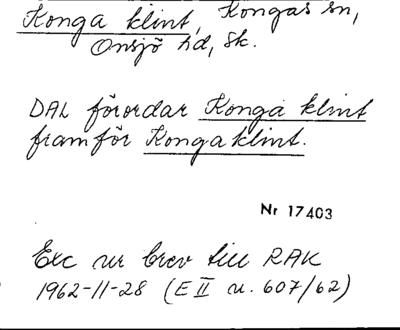 Konga klint, Kongas sn,
Onsjö hd, Sk.
DAL förordar Konga klint
framför Kongaklint.
Nr 17403
Exc ur brev till RAK
1962-11-28 (E II u. 607/62)